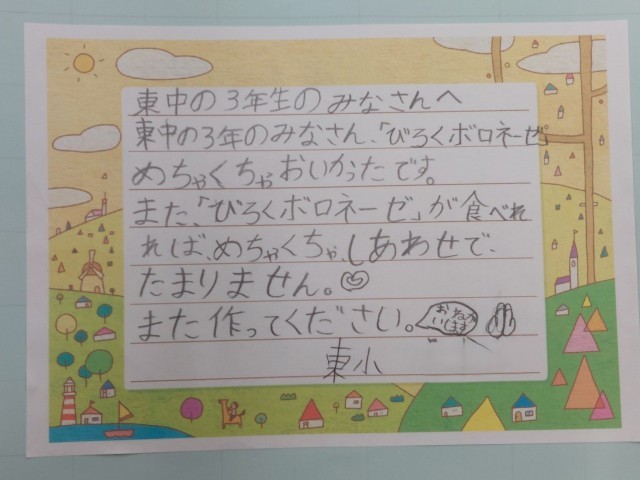 東中の3年生のみなさんへ
東中の3年のみなさん、「びろくボロネーゼ」
めちゃくちゃおいかったです。
また、「びろくボロネーゼ」が食べれ
れば、めちゃくちゃ、しあわせで、
たまりません。
また作ってください。
おねがいします
東小